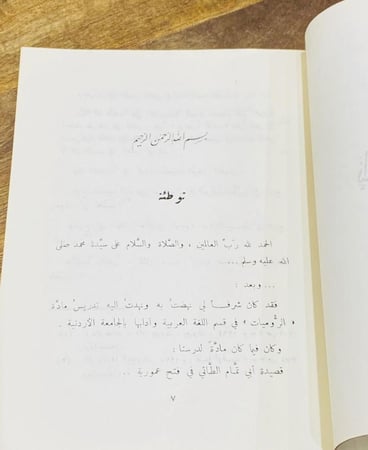 بسم الله الرحمن الرحيم
توطئة
الحمد لله ربّ العالمين ، والصّلاة والسّلام على سيّدنا محمد صلى
الله عليه وسلم ...
... وبعد :
فقد كان شرفاً لي نهضتُ به ونهدتُ اليه تدريسُ مادّة
« الرُّوميات » في قسم اللغة العربية وآدابها بالجامعة الأردنية .
وكان فيما كان مادّةً لدرسنا :
قصيدة أبي تمّام الطّائي في فتح عمورية ..
٧